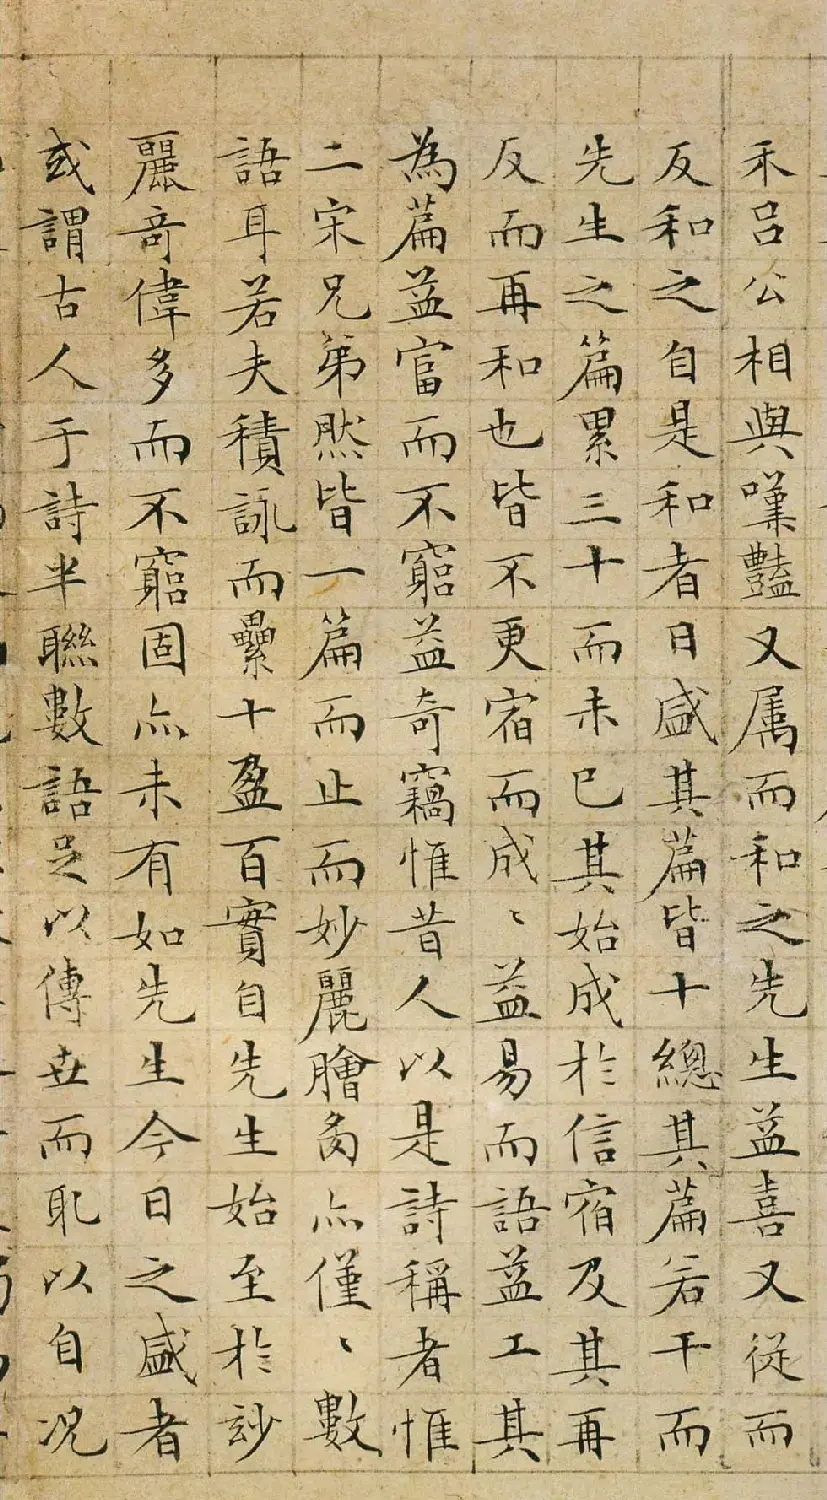 禾吕公相與嘆豔又属而和之先生益喜又從而
反和之自是和者日盛其篇皆十總其篇若干而
先生之篇累三十而未已其始成於信宿及其再
反而再和也皆不更宿而成〻益易而語益工其
為篇益富而不窮益奇竊惟昔人以是詩稱者惟
二宋兄弟然皆一篇而止而妙麗膾炙亦僅〻數
語耳若夫積詠而纍十盈百實自先生始至於玅
麗奇偉多而不窮固亦未有如先生今日之盛者
或謂古人于詩半聯數語足以傳世而耴以自况